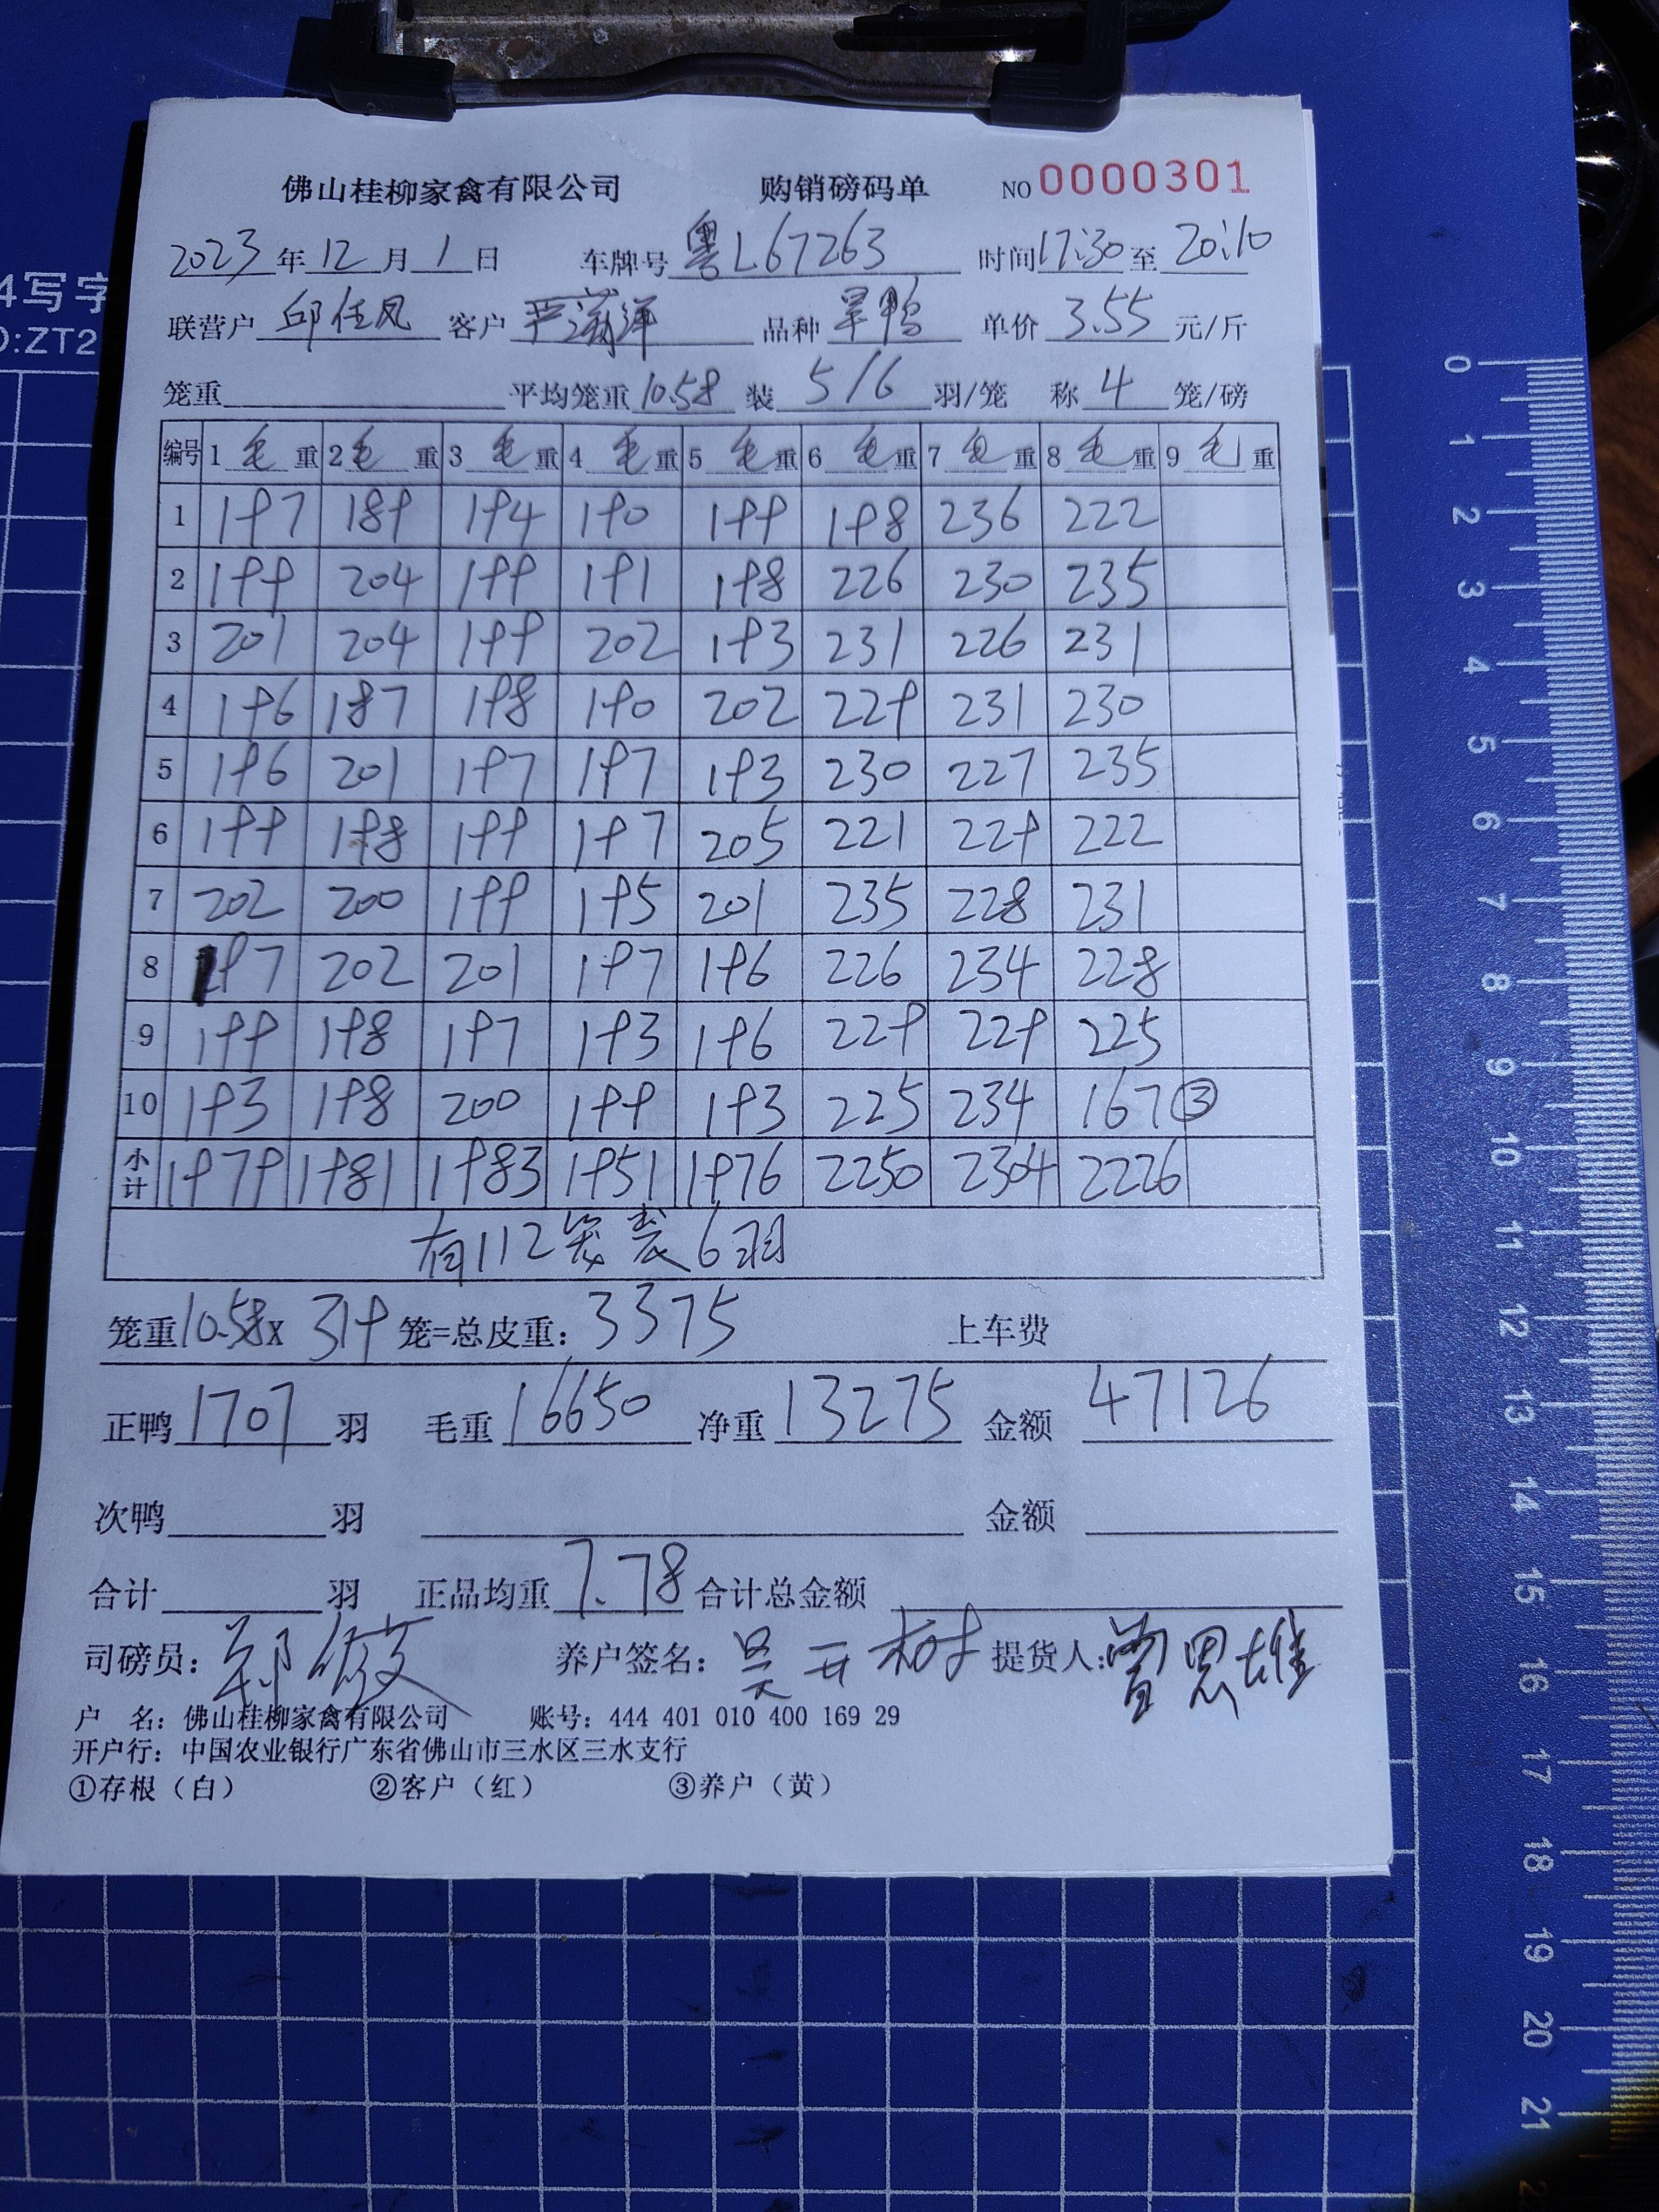 佛山桂柳家禽有限公司 购销磅码单 NO 0000301
2023年12月1日 车牌号 粤L67263 时间17:30至20:10
联营户 邱佳凤 客户 严 品种 旱鸭 单价 3.55 元/斤
笼重 平均笼重10.58 装 5/6 羽/笼 称 4 笼/磅
编号 1 毛 重 2 毛 重 3 毛 重 4 毛 重 5 毛 重 6 毛 重 7 毛 重 8 毛 重 9 毛 重
1 197 189 194 190 199 198 236 222
2 199 204 199 191 198 226 230 235
3 201 204 199 202 193 231 226 231
4 196 187 198 190 202 229 231 230
5 196 201 197 197 193 230 227 235
6 199 198 199 197 205 221 229 222
7 202 200 199 195 201 235 228 231
8 197 202 201 197 196 226 234 228
9 199 198 197 193 196 229 229 225
10 193 198 200 199 193 225 234 167③
小计 1979 1981 1983 1951 1976 2250 2304 2226
有112笼装6羽
笼重10.58x 319 笼=总皮重: 3375 上车费
正鸭 1707 羽 毛重 16650 净重 13275 金额 47126
次鸭 羽 金额
合计 羽 正品均重 7.78 合计总金额
司磅员: 郑 养户签名: 吴开树 提货人: 曾思雄
户 名: 佛山桂柳家禽有限公司 账号: 444 401 010 400 169 29
开户行: 中国农业银行广东省佛山市三水区三水支行
①存根（白） ②客户（红） ③养户（黄）
4写字
D:ZT2
0
1
2
3
4
5
6
7
8
9
10
11
12
13
14
15
16
17
18
19
20
21